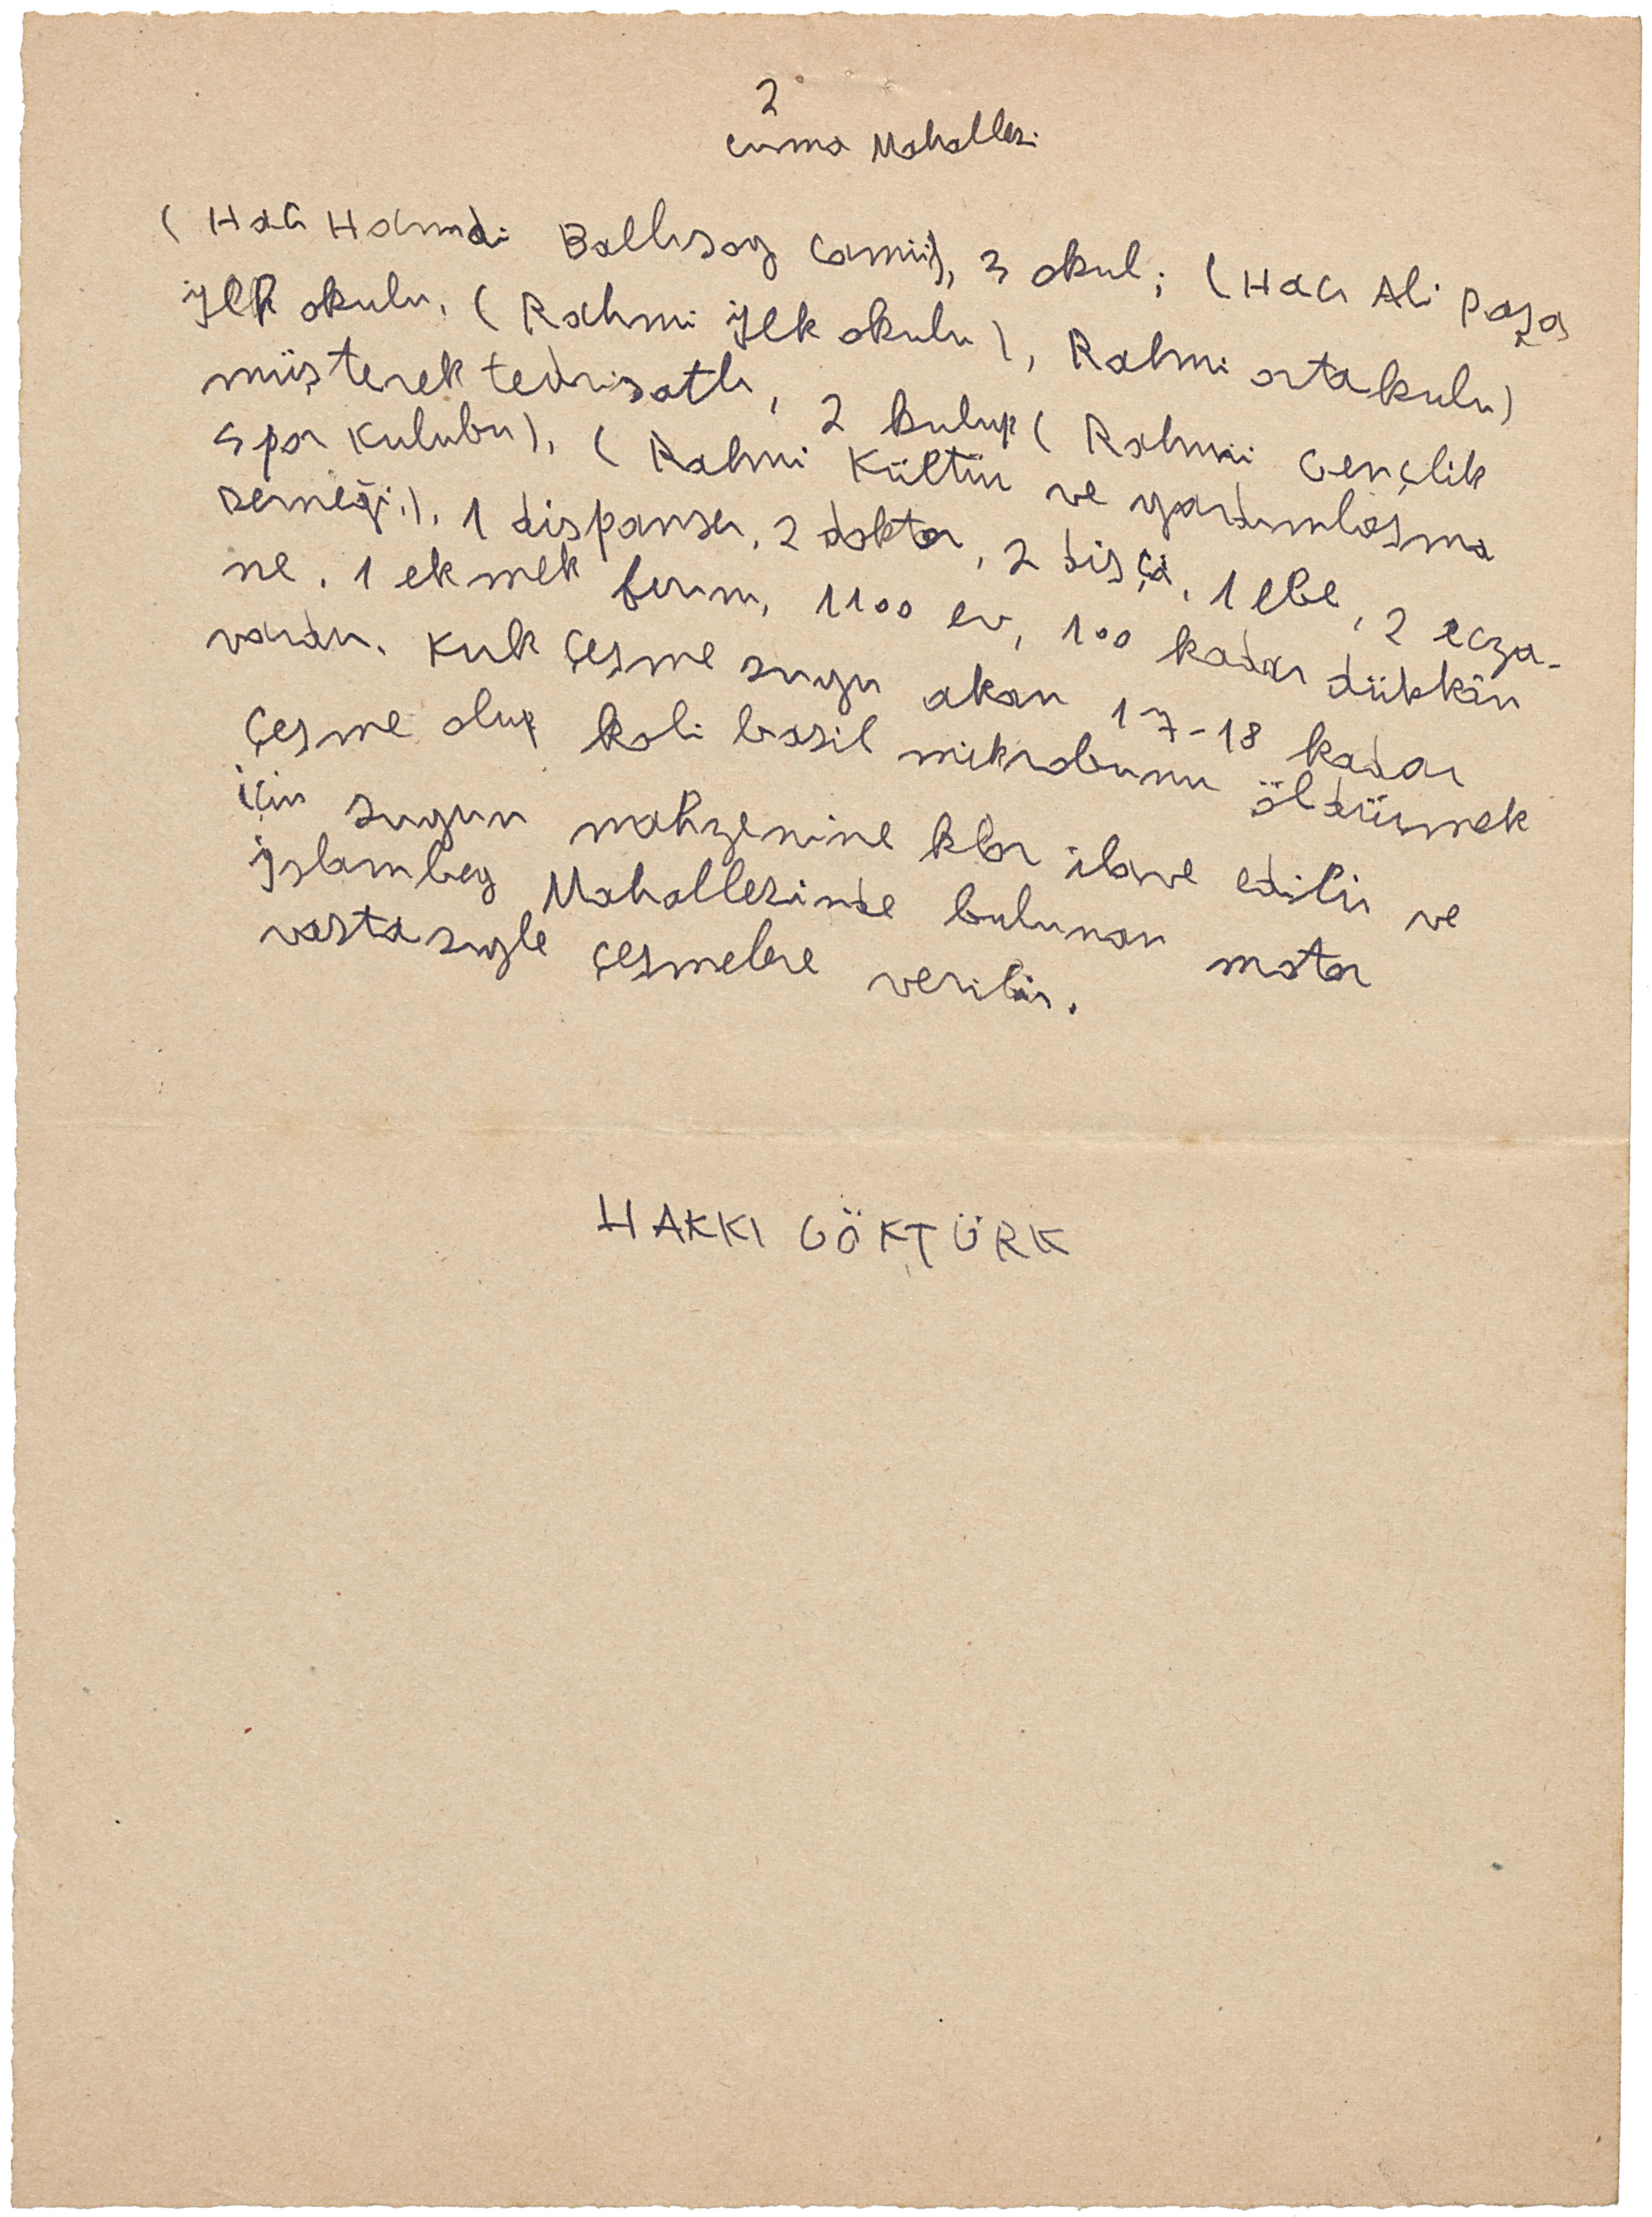 2
Cuma Mahallesi
( Hacı Hamdi Ballısoy Camii), 3 okul; ( Hacı Ali Paşa
İlk okulu, ( Rahmi İlk okulu ), Rahmi ortakulu)
müşterek tedrisatlı, 2 kulup ( Rahmi Gençlik
Spor Kulubu), ( Rahmi Kültür ve yardımlaşma
Derneği.), 1 dispanser, 2 doktor, 2 dişçi, 1 ebe, 2 ecza-
ne, 1 ekmek fırını, 1100 ev, 100 kadar dükkân
vardır. Kırk Çeşme suyu akan 17-18 kadar
Çeşme olup koli basil mikrobunu öldürmek
için suyun mahzenine klor ilave edilir ve
İslambey Mahallesinde bulunan motor
vastasıyle çeşmelere verilir.
HAKKI GÖKTÜRK